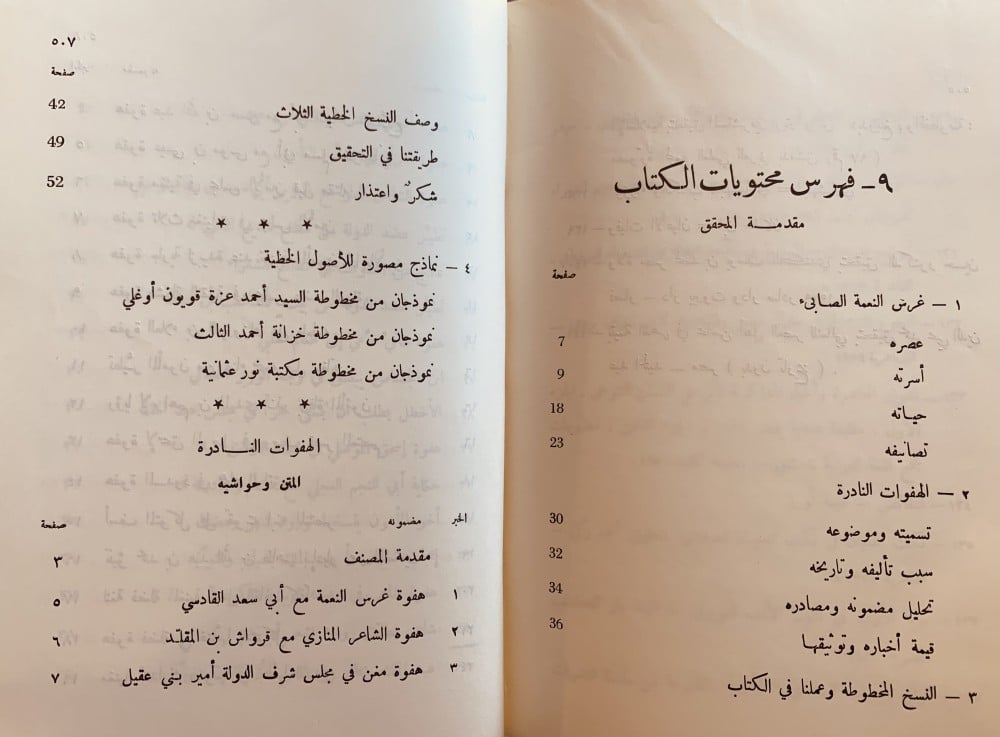 ٩ - فهرس محتويات الكتاب
مقدمة المحقق
صفحة
١ - غرس النعمة الصابىء
عصره 7
أسرته 9
حياته 18
تصانيفه 23
٢ - الهفوات النادرة
تسميته وموضوعه 30
سبب تأليفه وتاريخه 32
تحليل مضمونه ومصادره 34
قيمة أخباره وتوثيقها 36
٣ - النسخ المخطوطة وعملنا في الكتاب
٥٠٧
صفحة
وصف النسخ الخطية الثلاث 42
طريقتنا في التحقيق 49
شكرٌ واعتذار 52
* * *
٤ - نماذج مصورة للأصول الخطية
نموذجان من مخطوطة السيد أحمد عزة قويون أوغلي
نموذجان من مخطوطة خزانة أحمد الثالث
نموذجان من مخطوطة مكتبة نور عثمانية
* * *
الهفوات النادرة
المتن وحواشيه
الخبر مضمونه صفحة
مقدمة المصنف ٣
١ هفوة غرس النعمة مع أبي سعد القادسي ٥
٢ هفوة الشاعر المنازي مع قرواش بن المقلد ٦
٣ هفوة مغن في مجلس شرف الدولة أمير بني عقيل ٧